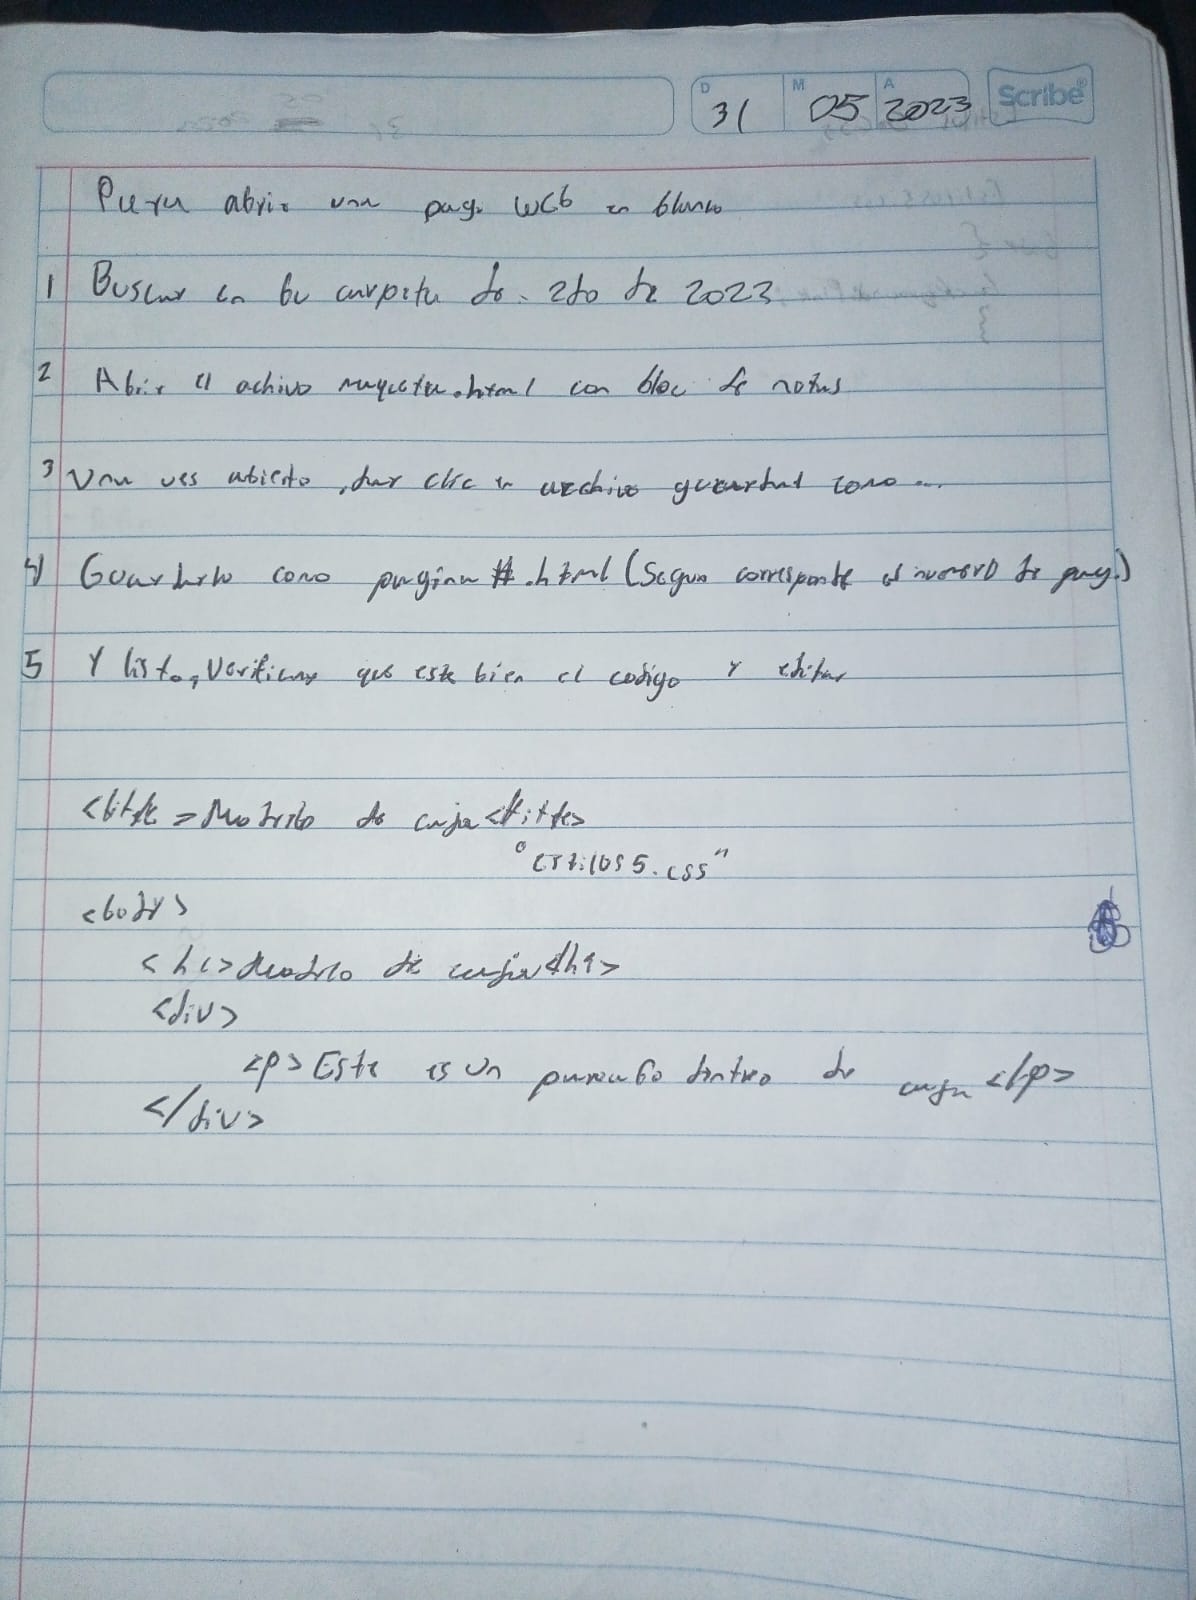 D 31 M 05 A 2023 Scribe
Para abrir una pag. web en blanco
1 Buscar en tu carpeta de. 2do de 2023
2 Abrir el achivo maqueta.html con bloc de notas
3 Una ves abierto, dar clic en archivo guardar como...
4 Guardarlo como pagina #.html (Segun corresponde el numero de pag.)
5 Y listo, Verificar que este bien el codigo y editar
<title = Modelo de caja</title>
"estilos5.css"
<body>
<h1>Modelo de caja</h1>
<div>
<p>Este es un parrafo dentro de caja</p>
</div>